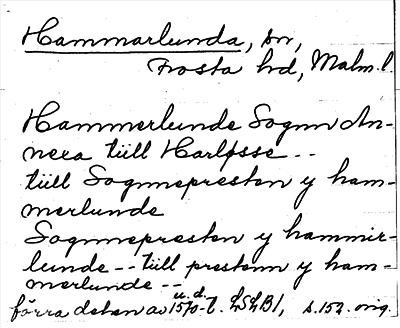 Hammarlunda, sn,
Frosta hd, Malm. l.
Hammerlunde Sognn An-
nexa tiill Harløsse --
tiill Sognnepresten y ham-
merlunde
Sognnepresten y hammir-
lunde -- tiill prestenn y ham-
merlunde --
förra delen av 1570-t. LSLB1, s. 152. orig.
u. d.